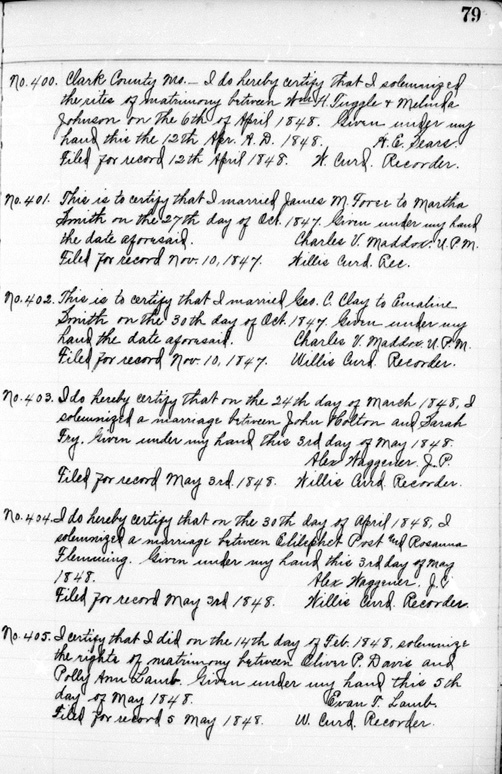 79
No. 400. Clark County Mo. — I do hereby certify that I solemnized
the rites of matrimony between Wm. H. Tuggle & Melinda
Johnson on the 6th of April 1848. Given under my
hand this the 12th Apr. A.D. 1848. H. E. Sears.
Filed for record 12th April 1848. W. Curd. Recorder.
No. 401. This is to certify that I married James M. to Martha
Smith on the 27th day of Oct. 1847. Given under my hand
the date aforesaid. Charles V. Maddox. U.P.M.
Filed for record Nov. 10, 1847. Willis Curd. Rec.
No. 402. This is to certify that I married Geo. C. Clay to Emaline
Smith on the 30th day of Oct. 1847. Given under my
hand the date aforesaid. Charles V. Maddox. U.P.M.
Filed for record Nov. 10, 1847. Willis Curd. Recorder.
No. 403. I do hereby certify that on the 24th day of March 1848, I
solemnized a marriage between John Holton and Sarah
Fry. Given under my hand this 3rd day of May 1848.
Alex Waggener. J.P.
Filed for record May 3rd. 1848. Willis Curd. Recorder.
No. 404. I do hereby certify that on the 30th day of April 1848, I
solemnized a marriage between Post and Rosanna
Flemming. Given under my hand this 3rd day of May
1848. Alex Waggener, J.P.
Filed for record May 3rd 1848. Willis Curd. Recorder.
No. 405. I certify that I did on the 14th day of Feb. 1848, solemnize
the rights of matrimony between Oliver P. Davis and
Polly Ann Lamb. Given under my hand this 5th
day of May 1848. Evan T. Lamb.
Filed for record 5 May 1848. W. Curd. Recorder.